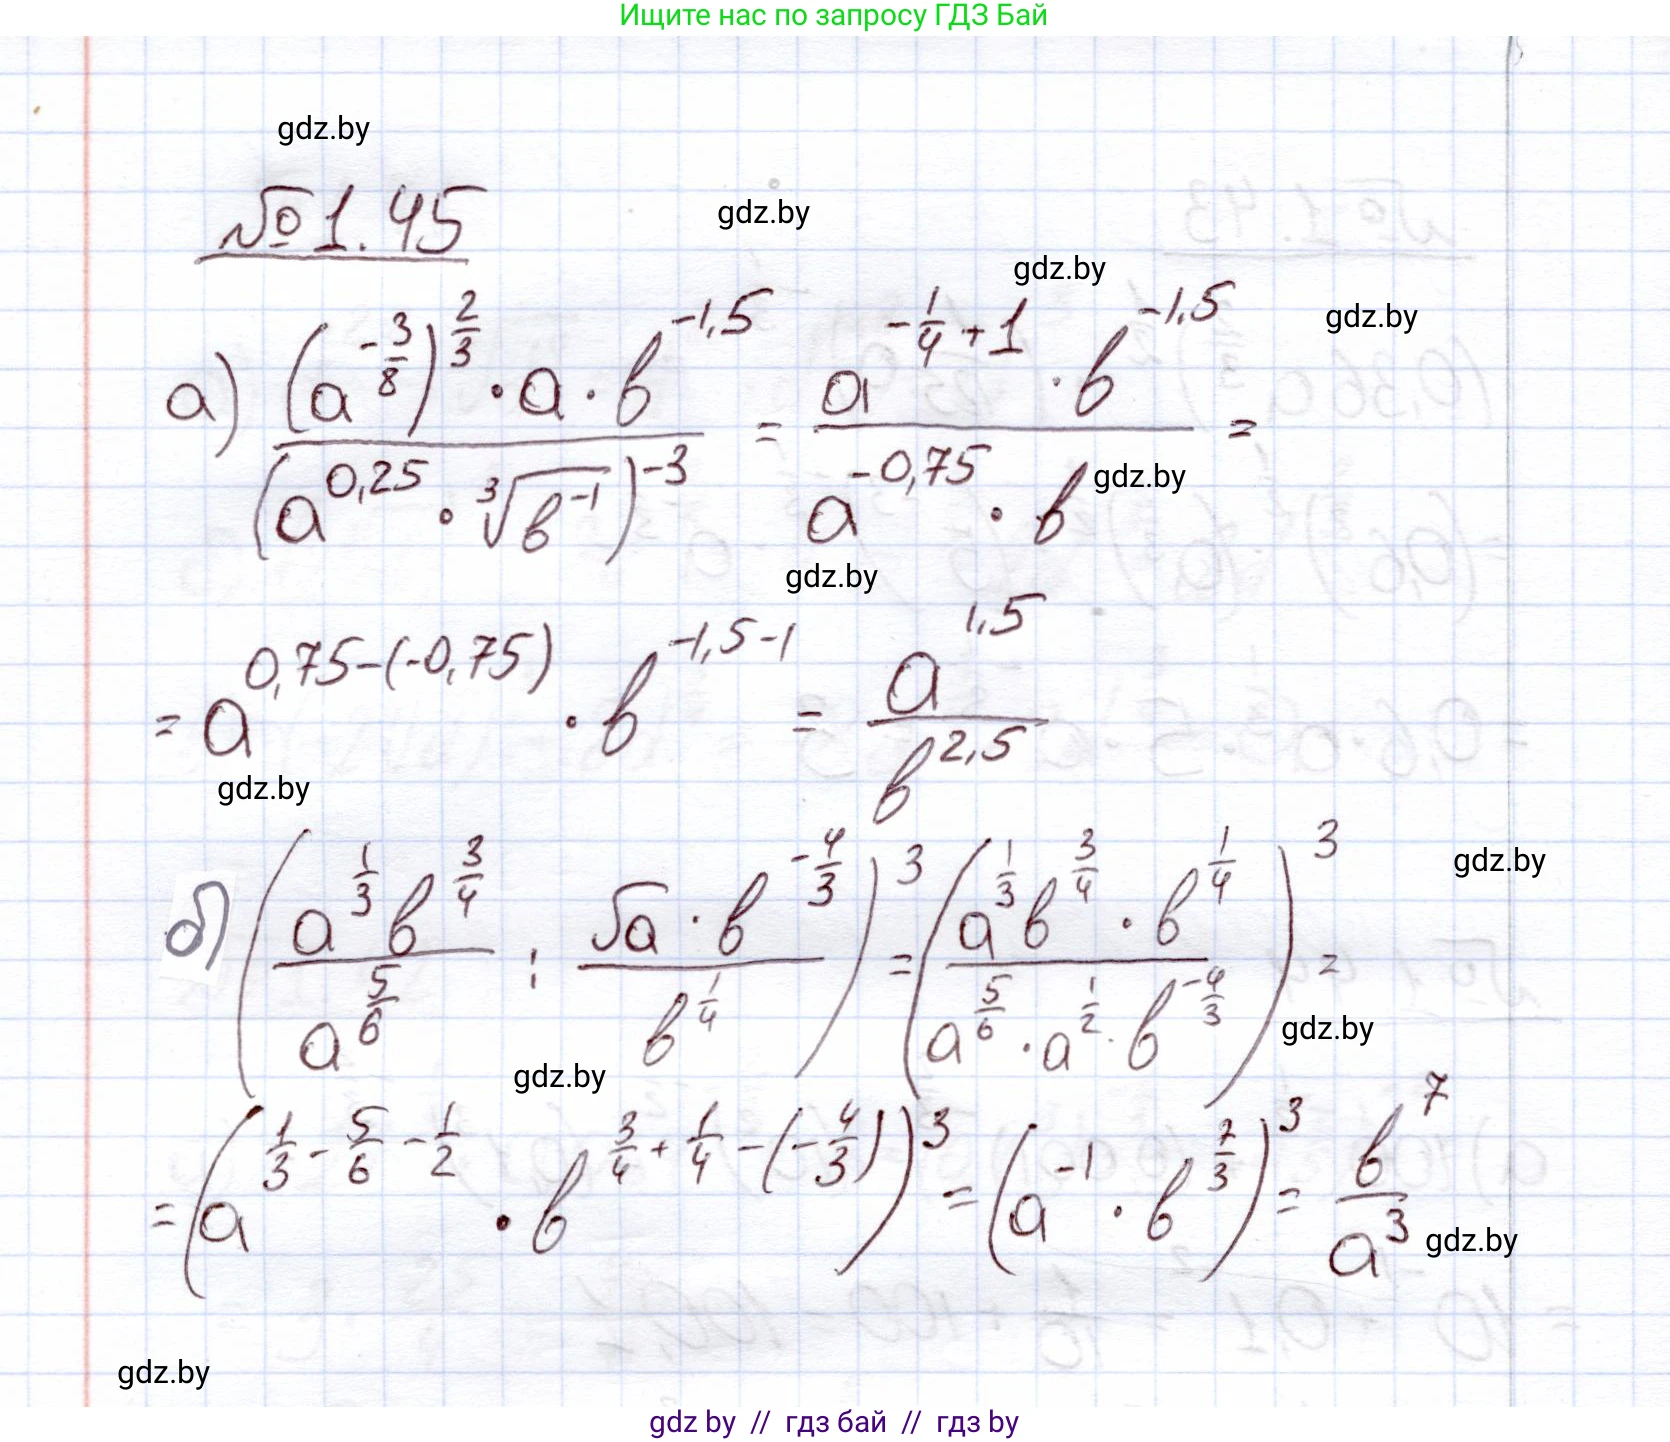 Ищите нас по запросу ГДЗ Бай
gdz.by
№1.45
gdz.by
gdz.by
gdz.by
а) ((a^(-3/8))^(2/3) · a · b^(-1,5)) / (a^(0,25) · ∛(b^(-1)))^(-3) = (a^(-1/4+1) · b^(-1,5)) / (a^(-0,75) · b) =
gdz.by
gdz.by
= a^(0,75-(-0,75)) · b^(-1,5-1) = a^(1,5) / b^(2,5)
gdz.by
б) ((a^(1/3) b^(3/4)) / a^(5/6) : (√a · b^(-4/3)) / b^(1/4))^3 = ((a^(1/3) b^(3/4) · b^(1/4)) / (a^(5/6) · a^(1/2) · b^(-4/3)))^3 =
gdz.by
gdz.by
gdz.by
= (a^(1/3-5/6-1/2) · b^(3/4+1/4-(-4/3)))^3 = (a^(-1) · b^(7/3))^3 = b^7 / a^3
gdz.by
gdz.by
gdz by // гдз бай // гдз by